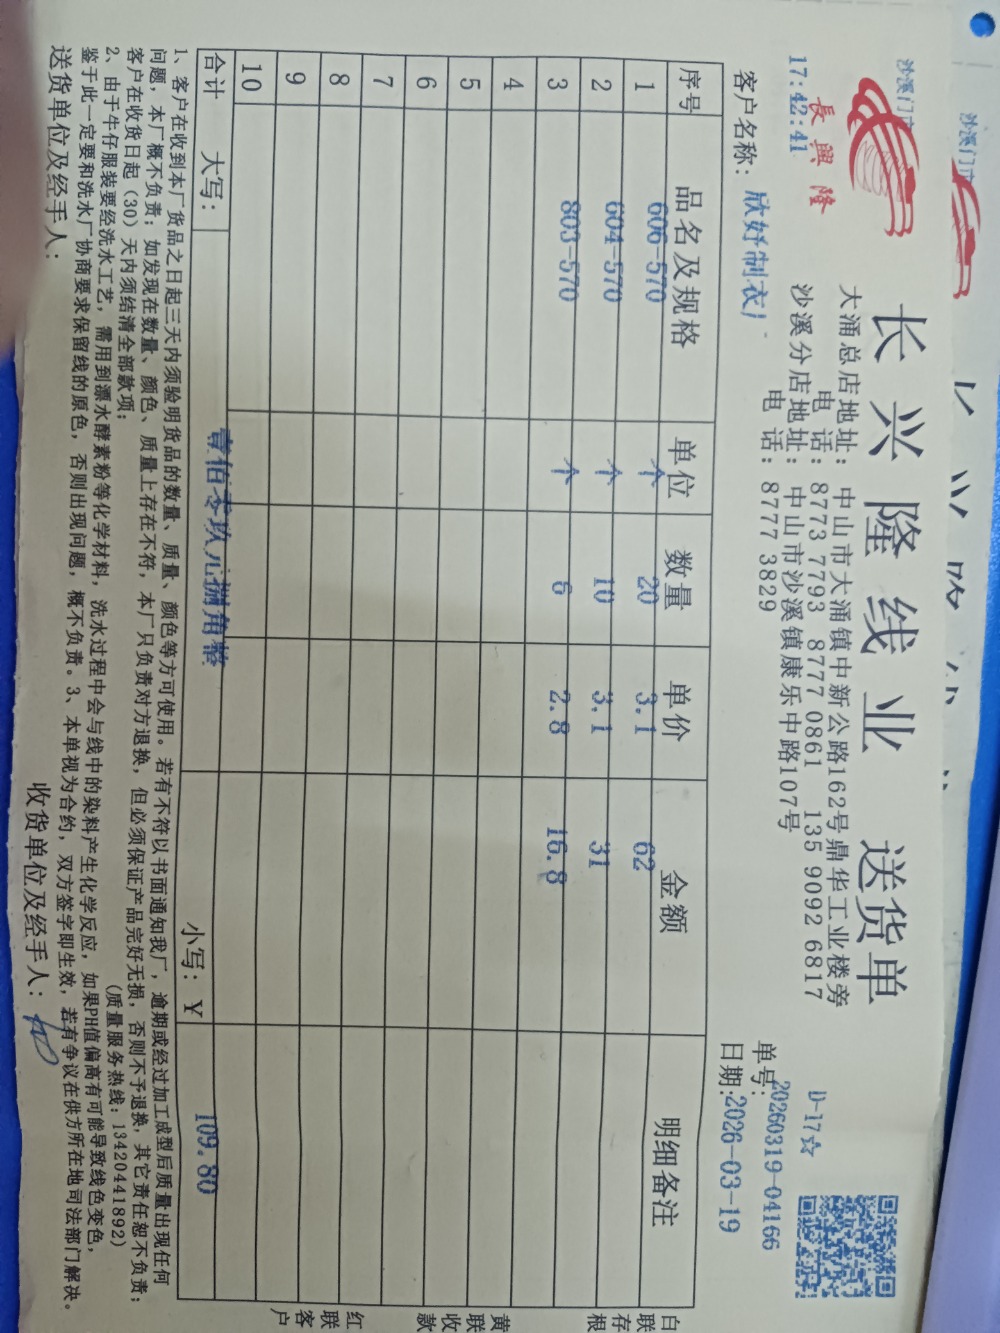 沙溪门市
17:42:41
長興隆
长兴隆线业 送货单
D-17☆
大涌总店地址:中山市大涌镇中新公路162号鼎华工业楼旁
电 话:8773 7793 8777 0861 135 9092 6817
沙溪分店地址:中山市沙溪镇康乐中路107号
电 话:8777 3829
单号:20260319-04166
客户名称:欣妤制衣厂
日期:2026-03-19
序号 品名及规格 单位 数量 单价 金额 明细备注
1 606-570 个 20 3.1 62
2 604-570 个 10 3.1 31
3 803-570 个 6 2.8 16.8
4
5
6
7
8
9
10
合计 大写: 壹佰零玖元捌角整 小写:¥ 109.80
白联存根
黄联收款
红联客户
1、客户在收到本厂货品之日起三天内须验明货品的数量、质量、颜色等方可使用。若有不符以书面通知我厂,逾期或经过加工成型后质量出现任何
问题,本厂概不负责;如发现在数量、颜色、质量上存在不符,本厂只负责对方退换,但必须保证产品完好无损,否则不予退换,其它责任恕不负责;
客户在收货日起(30)天内须结清全部款项;(质量服务热线:13420441892)
2、由于牛仔服装要经洗水工艺,需用到漂水酵素粉等化学材料,洗水过程中会与线中的染料产生化学反应,如果PH值偏高有可能导致线色变色,
鉴于此一定要和洗水厂协商要求保留线的原色,否则出现问题,概不负责。3、本单视为合约,双方签字即生效,若有争议在供方所在地司法部门解决。
送货单位及经手人: 收货单位及经手人:
沙溪门市